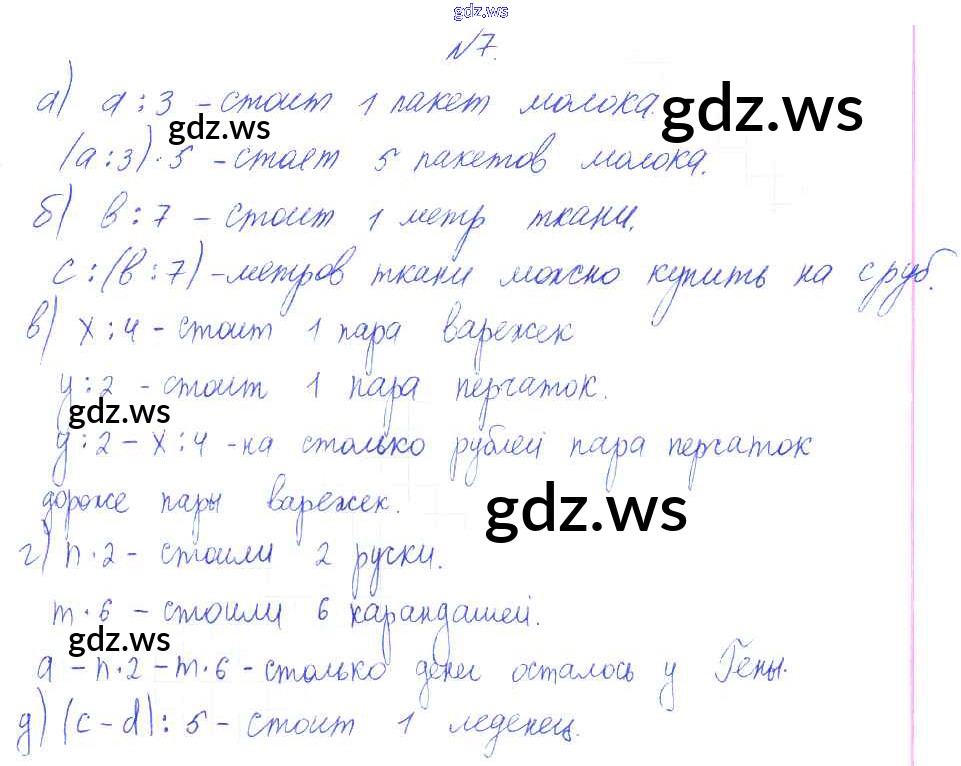 gdz.ws
N7.
а) а : 3 - стоит 1 пакет молока.
gdz.ws
gdz.ws
(а : 3) · 5 - стоет 5 пакетов молока.
б) в : 7 - стоит 1 метр ткани.
с : (в : 7) - метров ткани можно купить на с руб.
в) х : 4 - стоит 1 пара варежек
у : 2 - стоит 1 пара перчаток.
gdz.ws
у : 2 - х : 4 - на столько рублей пара перчаток
дороже пары варежек.
gdz.ws
г) n · 2 - стоили 2 руски.
m · 6 - стоили 6 карандашей.
gdz.ws
а - n · 2 - m · 6 - столько денег осталось у Гены.
д) (c - d) : 5 - стоит 1 леденец.